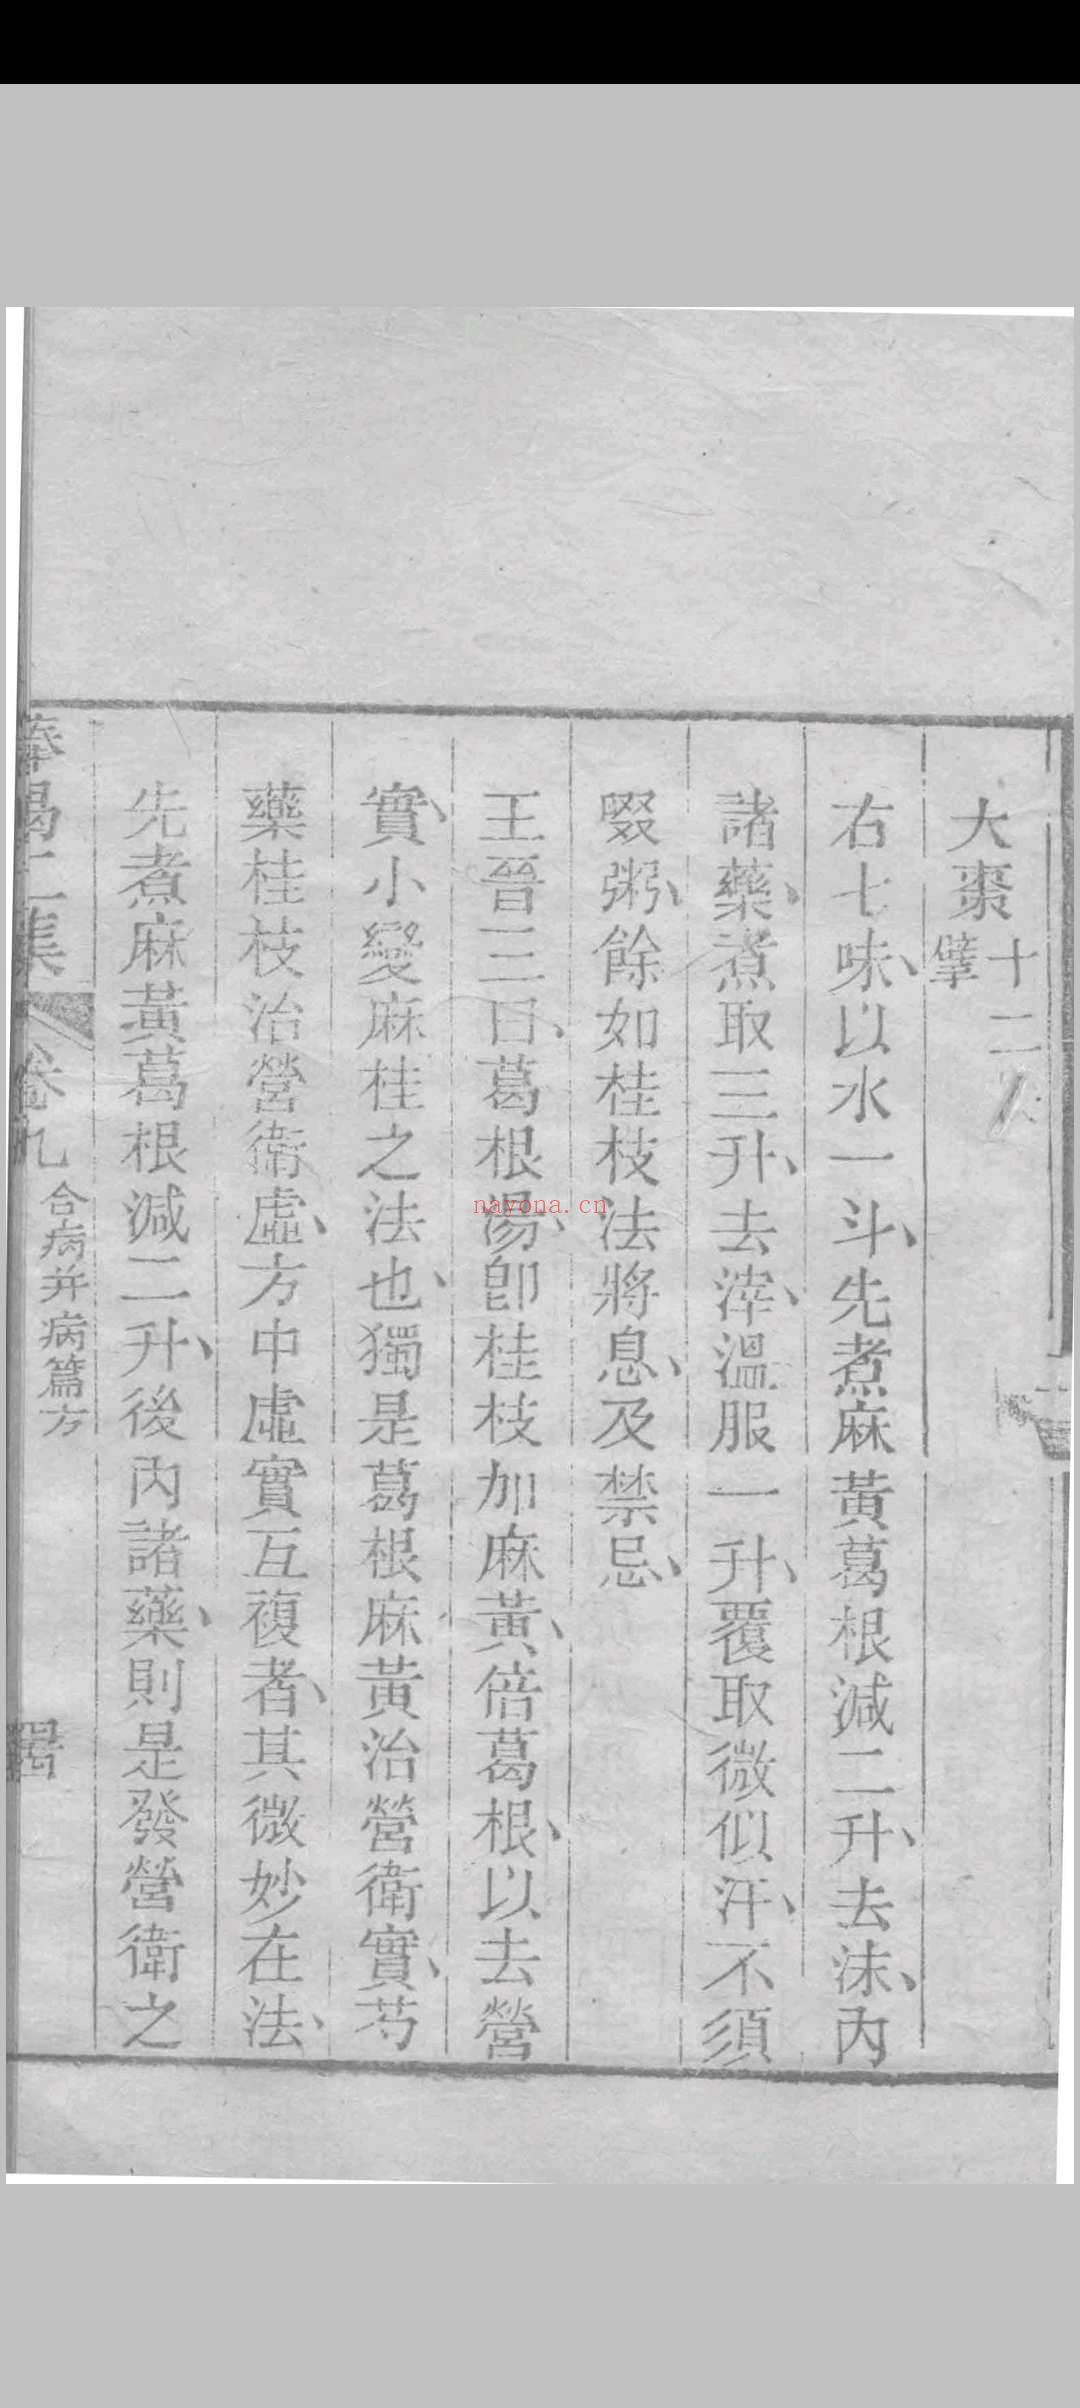 大棗十二枚擘
右七味、以水一斗、先煮麻黃葛根減二升、去沫、內
諸藥、煮取三升、去滓、溫服一升、覆取微似汗、不須
啜粥、餘如桂枝法將息、及禁忌、
王晉三曰、葛根湯、卽桂枝加麻黃、倍葛根、以去營
實、小變麻桂之法也、獨是葛根麻黃治營衛實、芍
藥桂枝治營衛虛、方中虛實互複者、其微妙在法、
先煮麻黃葛根減二升、後內諸藥、則是發營衛之
二集 卷九 合病并病篇方
nayona.cn